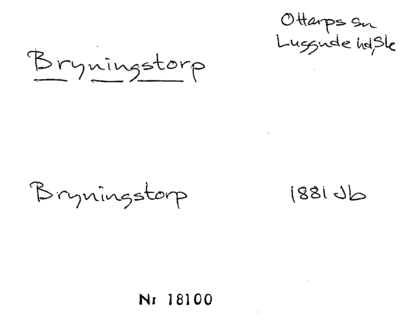 Ottarps sn
Luggude hd, Sk
Bryningstorp
Bryningstorp 1881 Jb
Nr 18100